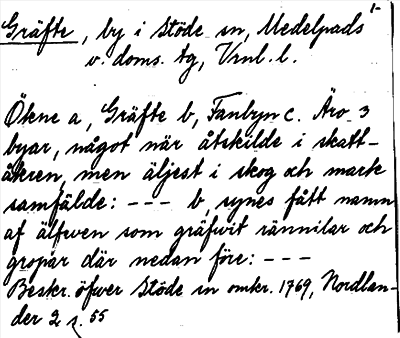 1-
Gräfte, by i Stöde sn, Medelpads
v. doms. tg, Vrnl. l.
Ökne a, Gräfte b, Fanbyn c. Äro 3
byar, något när åtskilde i skatt-
åkren, men äljest i skog och mark
samfälde: --- b, synes fått namn
af älfwen som gräfwit rännilar och
gropar där nedan före: ---
Beskr. öfwer Stöde sn omkr. 1769, Nordlan-
der 2 s. 55